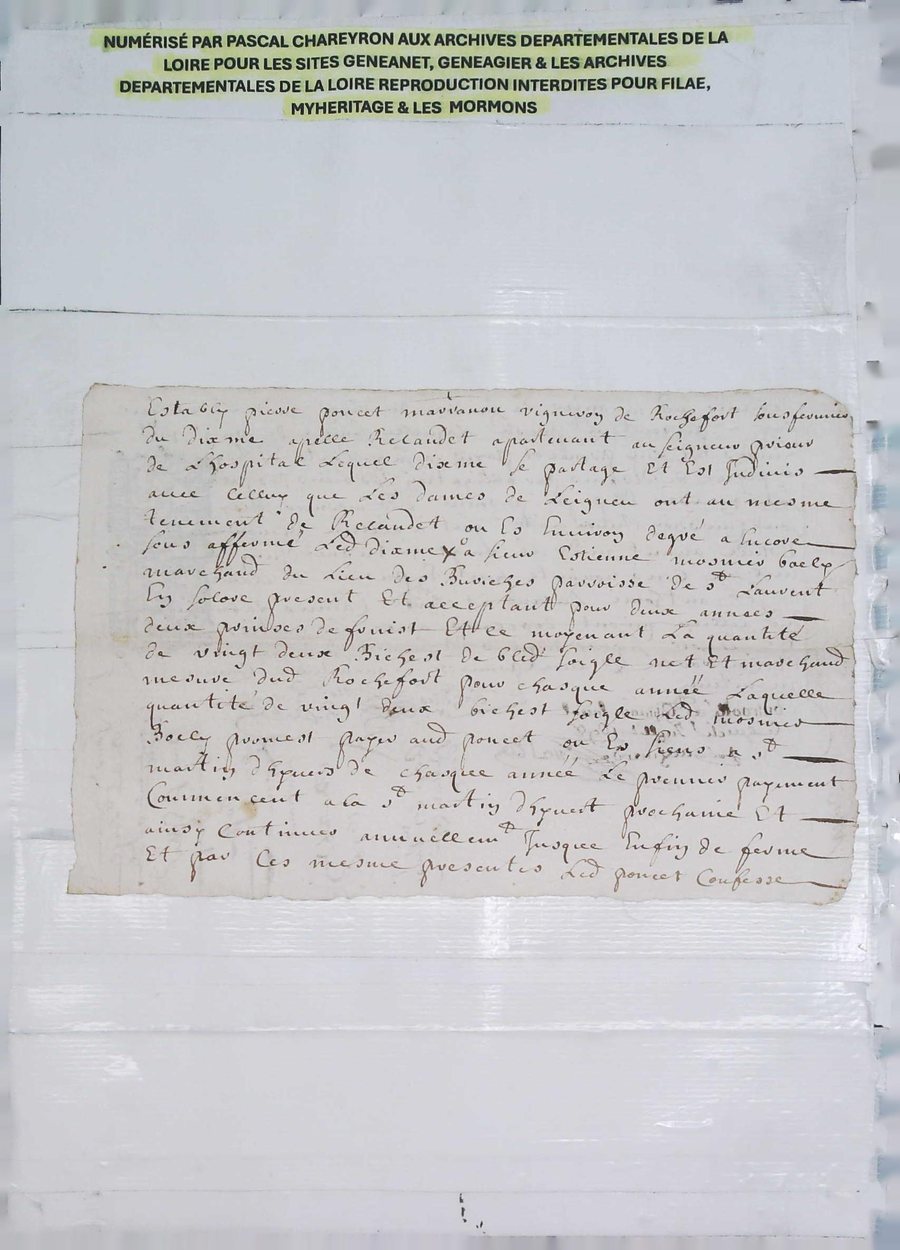 NUMÉRISÉ PAR PASCAL CHAREYRON AUX ARCHIVES DEPARTEMENTALES DE LA
LOIRE POUR LES SITES GENEANET, GENEAGIER & LES ARCHIVES
DEPARTEMENTALES DE LA LOIRE REPRODUCTION INTERDITES POUR FILAE,
MYHERITAGE & LES MORMONS
Estably pierre poncet marranon vigneron de Rochefort sousfermier
du dixme apelle Relandet apartenant au seigneur prieur
de Lhospital Lequel dixme se partage Et Est Indivis
avec Celluy que Les Dames de Leigneu ont au mesme
tenement de Relandet ou Es Environ degré a Encore
sous affermé Led dixme a sieur Estienne mosnier boely
marchand du Lieu des Buriches parroisse de st Laurent
En solore present Et acceptant pour deux annees
deux prinses de fruist Et ce moyenant La quantité
de vingt deux Bichest de bled soigle net Et marchand
mesure dud Rochefort pour chasque année Laquelle
quantité de vingt deux bichest soigle Led mosnier
Boely promest payer aud poncet ou Es siens a st
martin dhyuers de chasque année Le premier payement
Commencent a la st martin dhyuert prochaine Et
ainsy Continuer annuellemt Jusque Enfin de ferme
Et par Ces mesme presentes Led poncet Confesse